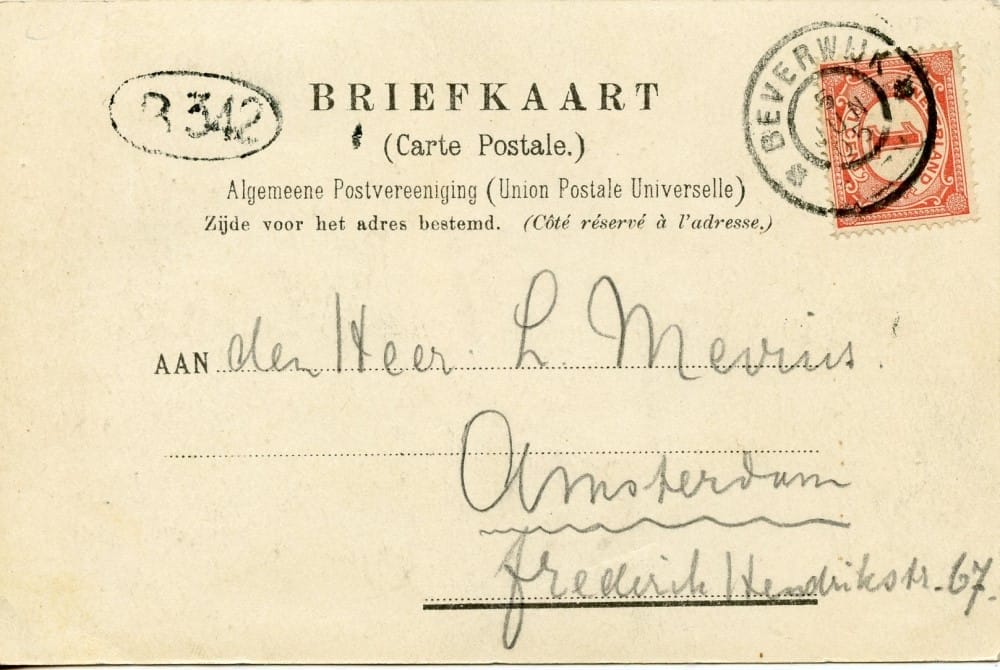 BRIEFKAART
(Carte Postale.)
Algemeene Postvereeniging (Union Postale Universelle)
Zijde voor het adres bestemd. (Côté réservé à l'adresse.)
342
BEVERWIJK
NEDERLAND
1
AAN den Heer L. Mevius.
Amsterdam
Frederick Hendrikstr. 67.